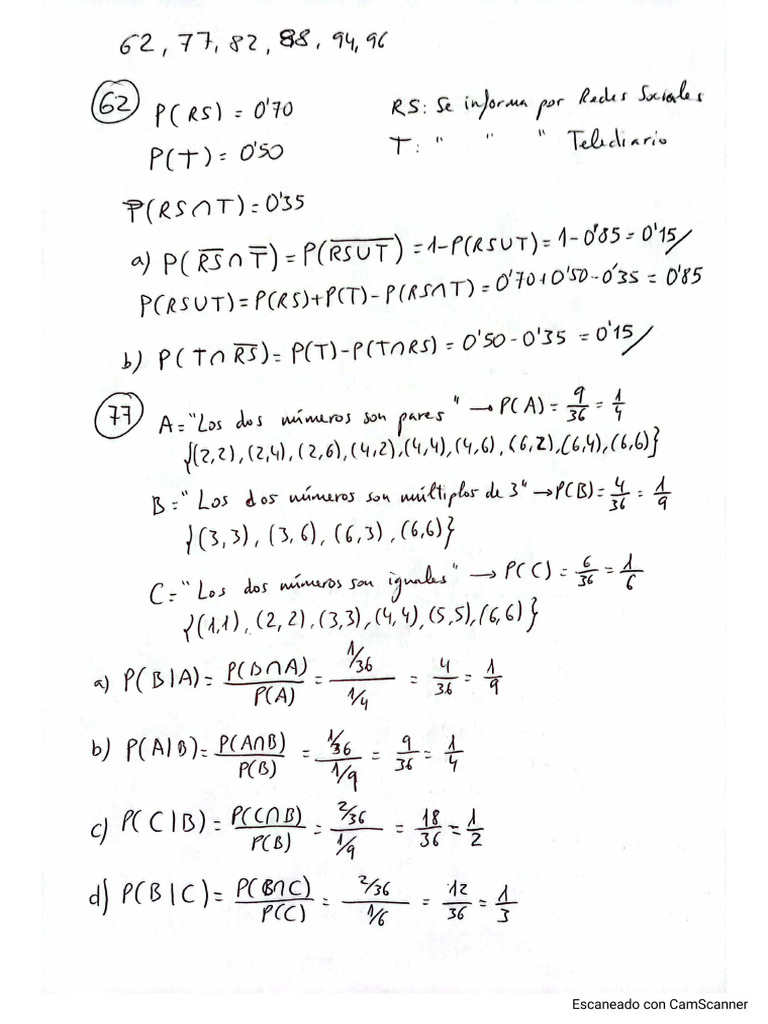 62, 77, 82, 88, 94, 96
62 P(RS) = 0'70 RS: Se informa por Redes Sociales
P(T) = 0'50 T: " " " Telediario
P(RS∩T) = 0'35
a) P(R̅S̅ ∩ T̅) = P(R̅S̅∪̅T̅) = 1-P(RSUT) = 1-0'85 = 0'15/
P(RSUT) = P(RS)+P(T)-P(RS∩T) = 0'70+0'50-0'35 = 0'85
b) P(T∩R̅S̅) = P(T)-P(T∩RS) = 0'50-0'35 = 0'15/
77 A = "Los dos números son pares" → P(A) = 9/36 = 1/4
{(2,2), (2,4), (2,6), (4,2), (4,4), (4,6), (6,2), (6,4), (6,6)}
B = "Los dos números son múltiplos de 3" → P(B) = 4/36 = 1/9
{(3,3), (3,6), (6,3), (6,6)}
C = "Los dos números son iguales" → P(C) = 6/36 = 1/6
{(1,1), (2,2), (3,3), (4,4), (5,5), (6,6)}
a) P(B|A) = P(B∩A)/P(A) = 1/36 / 1/4 = 4/36 = 1/9
b) P(A|B) = P(A∩B)/P(B) = 1/36 / 1/9 = 9/36 = 1/4
c) P(C|B) = P(C∩B)/P(B) = 2/36 / 1/9 = 18/36 = 1/2
d) P(B|C) = P(B∩C)/P(C) = 2/36 / 1/6 = 12/36 = 1/3
Escaneado con CamScanner